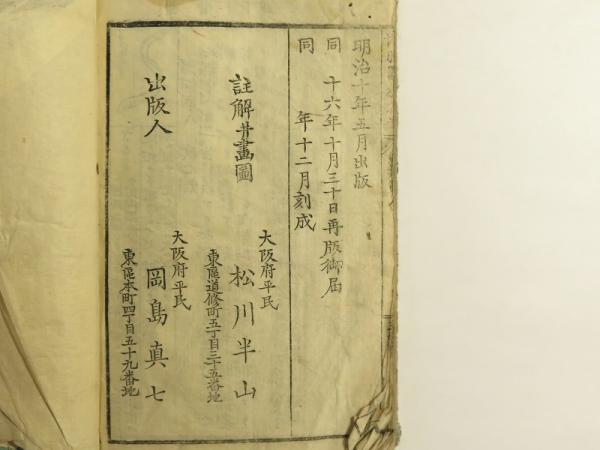 明治十年五月出版
同 十六年十月三十日再版御届
同 年十二月刻成
註解并畫圖
大阪府平民
松川半山
東區道修町五丁目三十五番地
出版人
大阪府平民
岡島真七
東區本町四丁目五十九番地